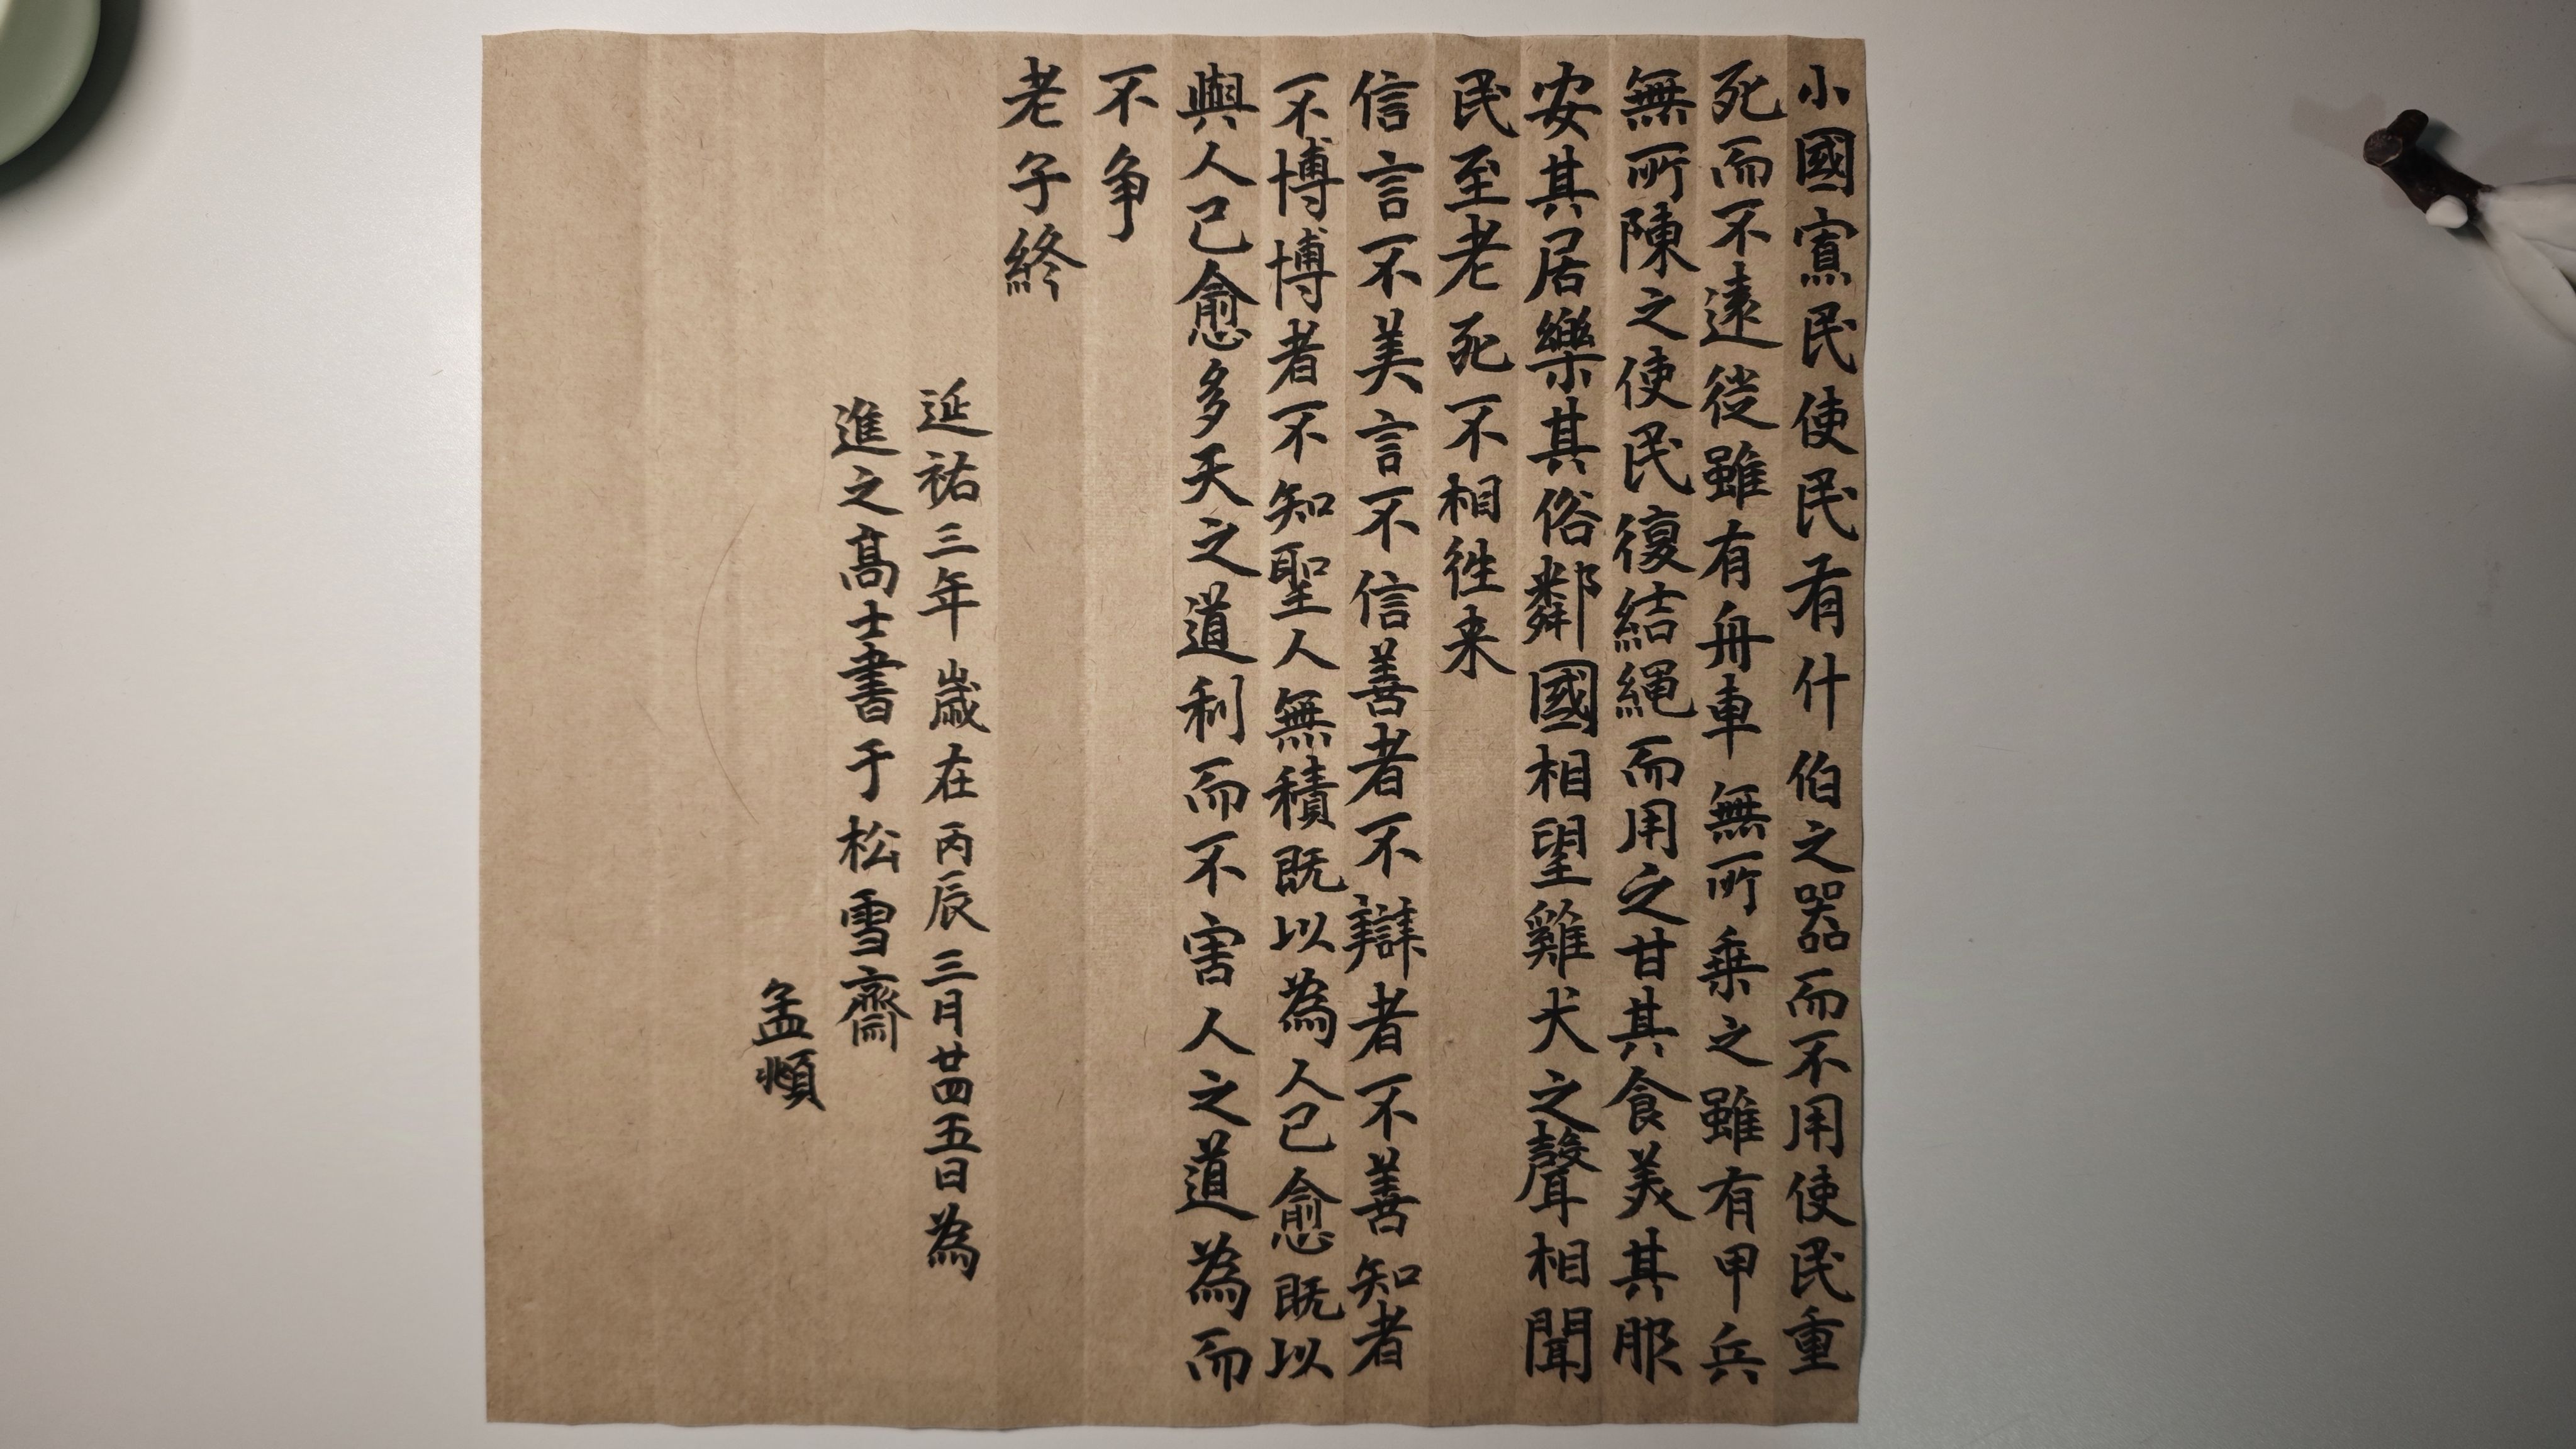 小國寡民使民有什伯之器而不用使民重
死而不遠徙雖有舟車無所乗之雖有甲兵
無所陳之使民復結縄而用之甘其食美其服
安其居樂其俗鄰國相望雞犬之聲相聞
民至老死不相徃来
信言不美美言不信善者不辯辯者不善知者
不博博者不知聖人無積既以為人己愈既以
與人己愈多天之道利而不害人之道為而
不争
老子終
延祐三年歳在丙辰三月廿四五日為
進之髙士書于松雪齋
孟頫